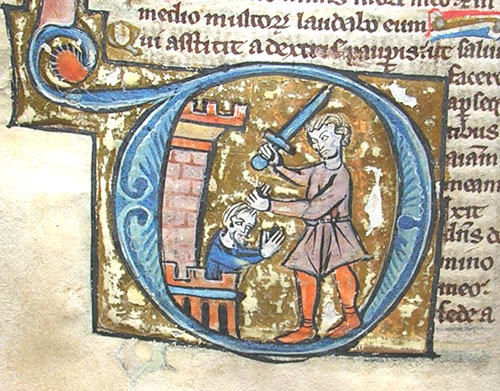 medio multoꝝ laudabo eum
Qui astitit a dextris pauꝑis: ut salu
facere
aꝑse
tibus
aīam
meam
ixit
dn̄s do
mino
meo:
sede a